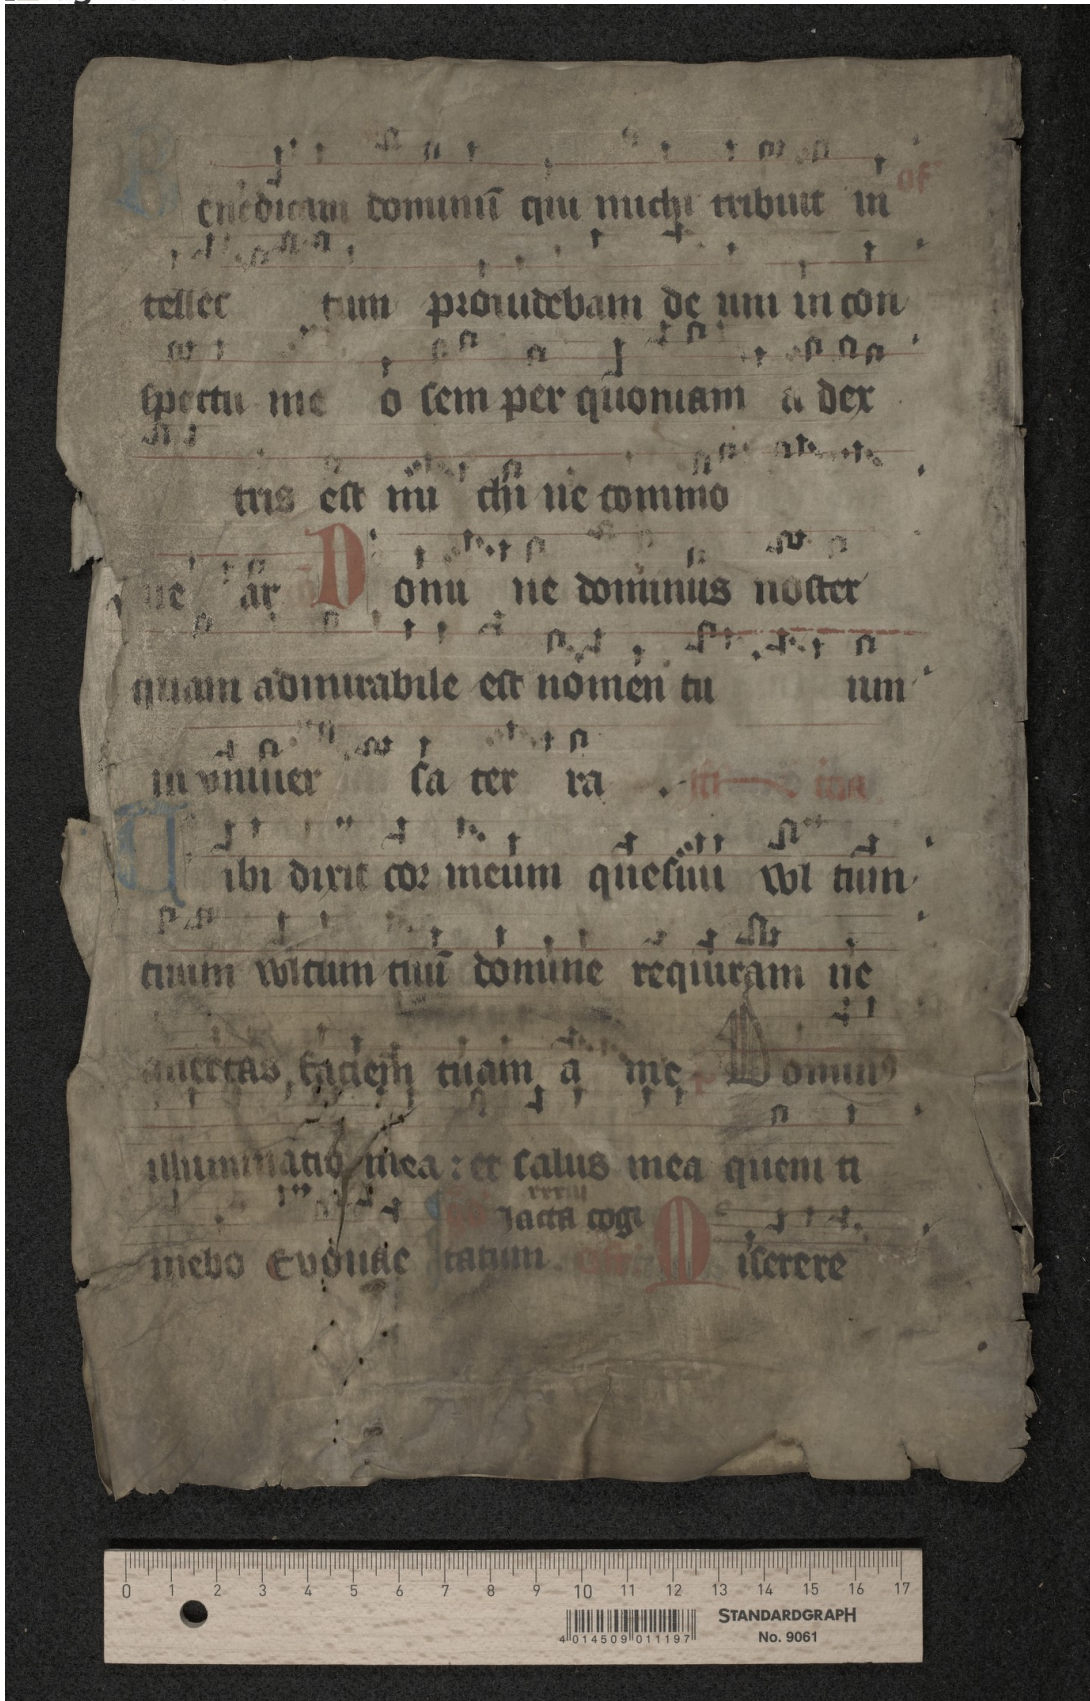 of
Benedicam dominū qui michi tribuit in
tellec tum prouidebam de um in con
spectu me o sem per quoniam a dex
tris est mi chi ne commo
ue ar Domi ne dominus noster
quam admirabile est nomen tu um
in vniuer sa ter ra
Tibi dixit cor meum quesiui vul tum
tuum vultum tuū domine requiram ne
auertas faciem tuam a me Domin9
illuminatio mea : et salus mea quem ti
xxxiij
Jacta cogi
mebo Euouae tatum Miserere
0 1 2 3 4 5 6 7 8 9 10 11 12 13 14 15 16 17
STANDARDGRAPH
4 014509 011197
No. 9061